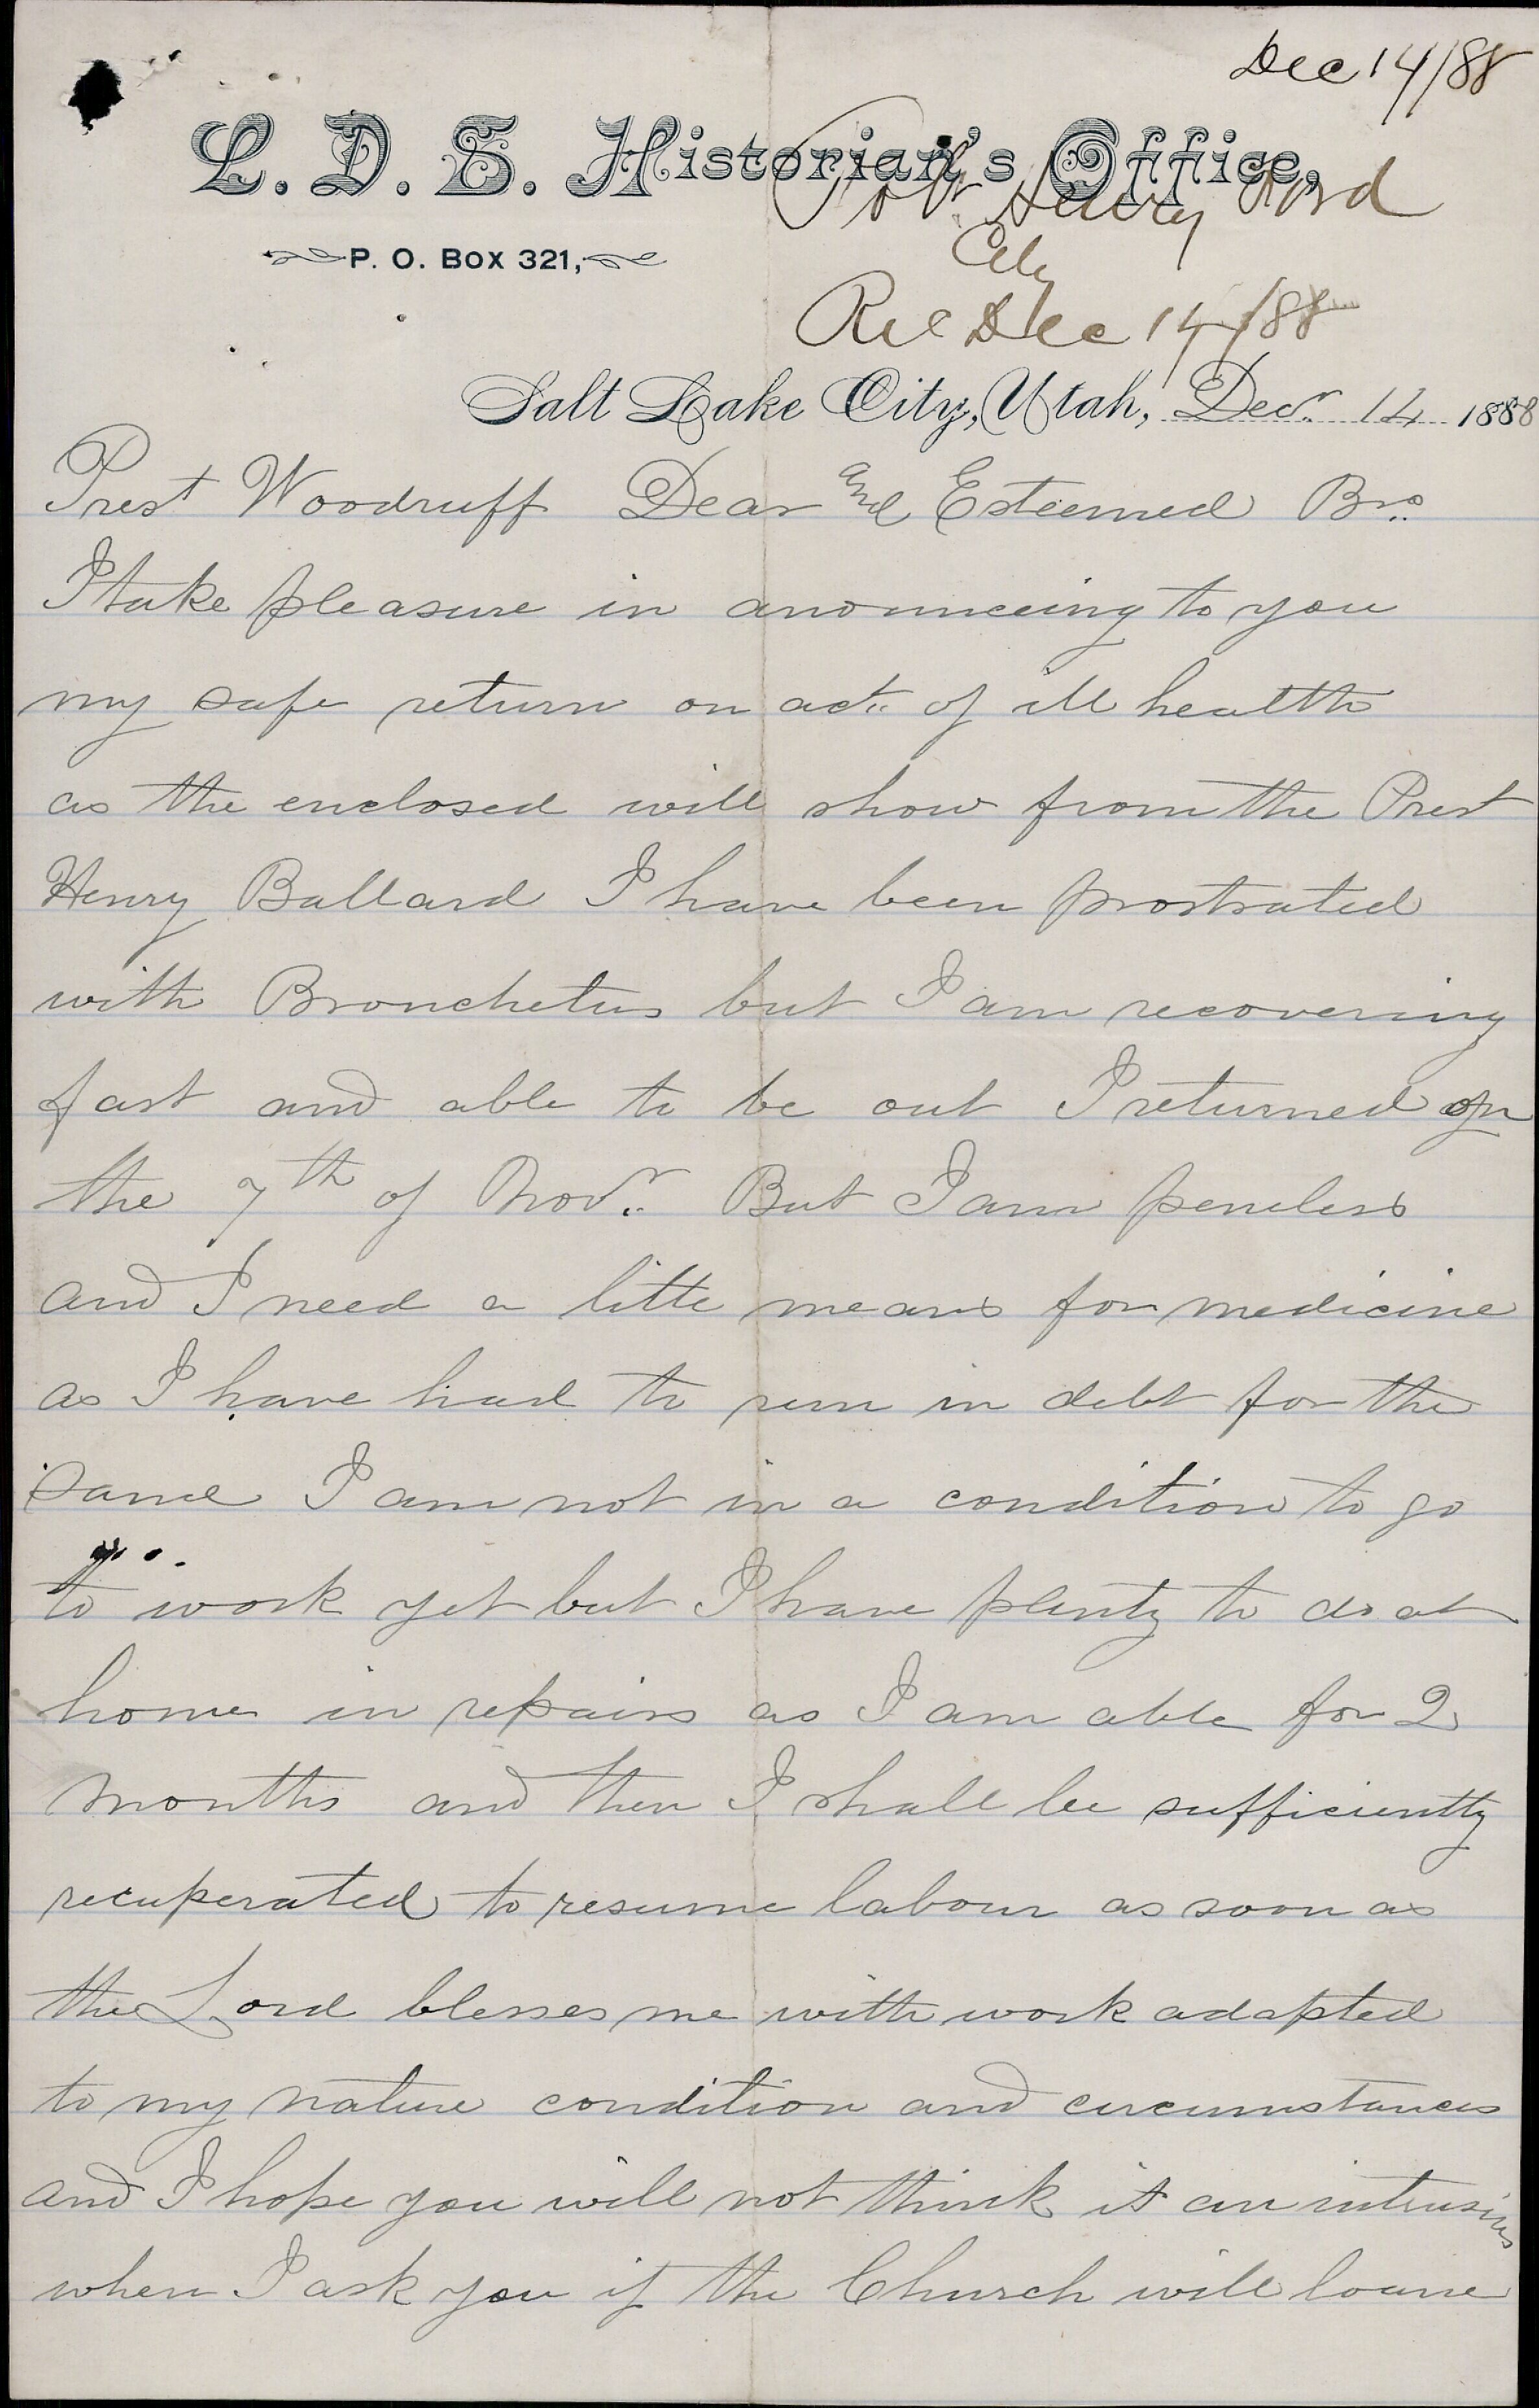 Dec 14/88
L. D. S. Historian's Office,
Henry Ord
City
P. O. Box 321,
Rec Dec 14/88
Salt Lake City, Utah, Decr. 14 1888
Prest Woodruff Dear and Esteemed Bro.
I take pleasure in anouncing to you
my safe return on act. of ill health
as the enclosed will show from the Prest
Henry Ballard I have been prostrated
with Bronchetus but I am recovering
fast and able to be out I returned on
the 7th of Novr. But I am peneless
and I need a litte means for medicine
as I have had to run in debt for the
same I am not in a condition to go
to work yet but I have plenty to do at
home in repairs as I am able for 2
months and then I shall be sufficiently
recuperated to resume labour as soon as
the Lord blesses me with work adapted
to my nature condition and circumstances
and I hope you will not think it an intrusion
when I ask you if the Church will loane